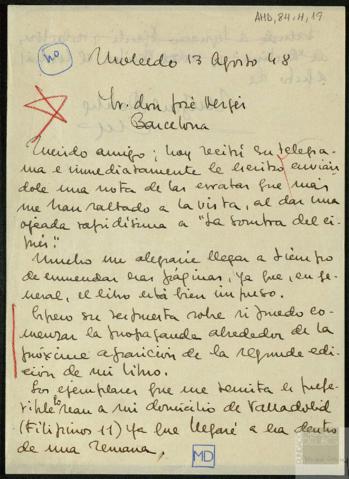 AMD, 84, H, 19
no
Molledo 13 Agosto 48
Sr. don José Vergés
Barcelona
Querido amigo; hoy recibí su telegra-
ma e inmediatamente le escribo envián
dole una nota de las erratas que más
me han saltado a la vista, al dar una
ojeada rapidísima a "La sombra del ci-
prés".
Mucho me alegraría llegar a tiempo
de enmendar esas páginas, ya que, en ge-
neral, el libro está bien impreso.
Espero su respuesta sobre si puedo co-
menzar la propaganda alrededor de la
próxima aparición de la segunda edi-
ción de mi libro.
Los ejemplares que me remita es prefe-
rible lo sean a mi domicilio de Valladolid
(Filipinos 11) ya que llegaré a ésa dentro
de una semana.
MD